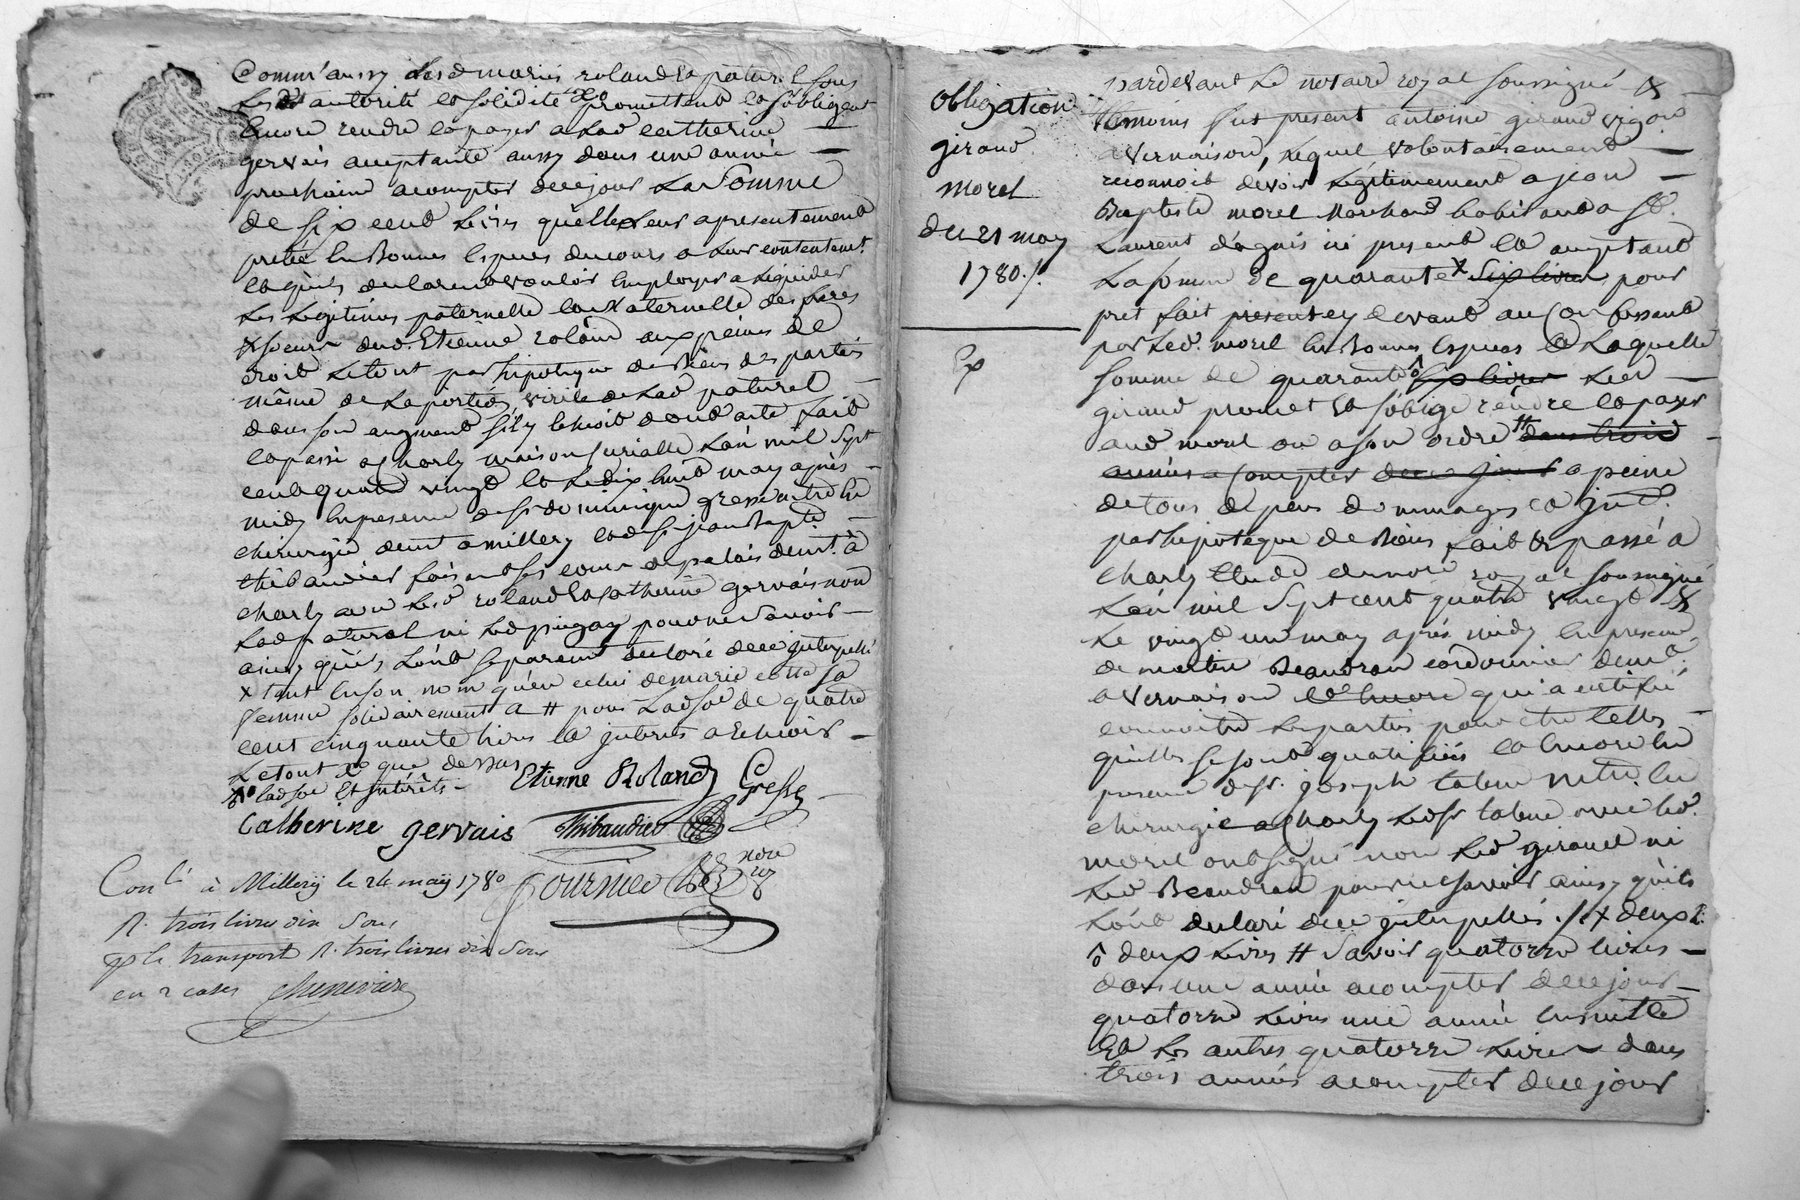 Comm'aussy Lesd maries roland et paturel sous
Lesd autorité et solidité promettent et s'obligent
Encore rendre et payer a Lad catherine
gervais acceptante aussy dans une année
prochaine a compter de ce jour La Somme
de six cent Livres qu'elle Leur a presentement
pretée En Bonnes Especes du cours a Leur contentemt
et qu'ils declarent vouloir Employer a Liquider
Les Legitimes paternelle et maternelle des freres
et soeurs dud. Etienne roland aux peines de
droit Le tout par hipoteque de Biens des parties
même de La portion virile de Lad paturel
dans son augment s'il y Echoit dont acte fait
et passé a Charly maison Curialle L'an mil Sept
cent quatre vingt et Le dix huit may après
midy En presence de sr dominique gresse maitre En
chirurgie demt a millery et de sr jean Bapte
thibaudier faisant ses cours de palais demt à
charly avec Led roland et Catherine gervais non
Lad paturel ni Led pour ne Savoir
ainsy qu'ils L'ont separement declaré de ce interpellé
x tant En son nom qu'en celui de marie sa
femme solidairement a # pour Lad soe de quatre
cent cinquante livres et interets a Echoir
Le tout que dessus
Lad soe Et Intérêts
Etienne Roland Gresse
Catherine gervais Thibaudier
Fournier nore roy
Conlé à Millery le 24 may 1780
R. trois livres dix Sous
pr le transport R. trois livres dix Sous
en 2 cases Chenevière
Obligation
giraud
morel
du 21 may
1780 /.
Ex
Pardevant Le notaire royal soussigné &
temoins fut present antoine giraud vigon
a vernaison, Lequel volontairement
reconnoit devoir Legitimement a jean
Baptiste morel Marchand habitant a St.
Laurent d'agnis ici present et acceptant
La somme de quarante x six livres pour
pret fait presentement avant au Consessant
par Led. morel En Bonnes Especes et Laquelle
somme de quarante six livres Led
giraud promet et s'oblige rendre et payer
aud morel ou a son ordre # dans trois
années a compter de ce jour a peine
de tous depens dommages et intt.
par hipoteque de Biens, fait et passé a
Charly Etude du nore royal soussigné
L'an mil Sept cent quatre vingt &
Le vingt un may après midy En presence
de martin Beaudran cordonnier demt.
a vernaison et Encore qui a certifié
connoitre Les parties pour etre telles
qu'elles se sont qualifiées et Encore En
presence de sr. joseph tabue maitre En
chirurgie a Charly Led sr tabue avec Led.
morel ont signé non Led giraud ni
Led Beaudran pour ne Savoir ainsy qu'ils
L'ont declaré de ce interpellés ./. x deux L.
o deux Livres # Savoir quatorze livres
dans une année a compter de ce jour
quatorze Livres une année Ensuitte
Et Les autres quatorze Livres dans
trois années a compter de ce jour